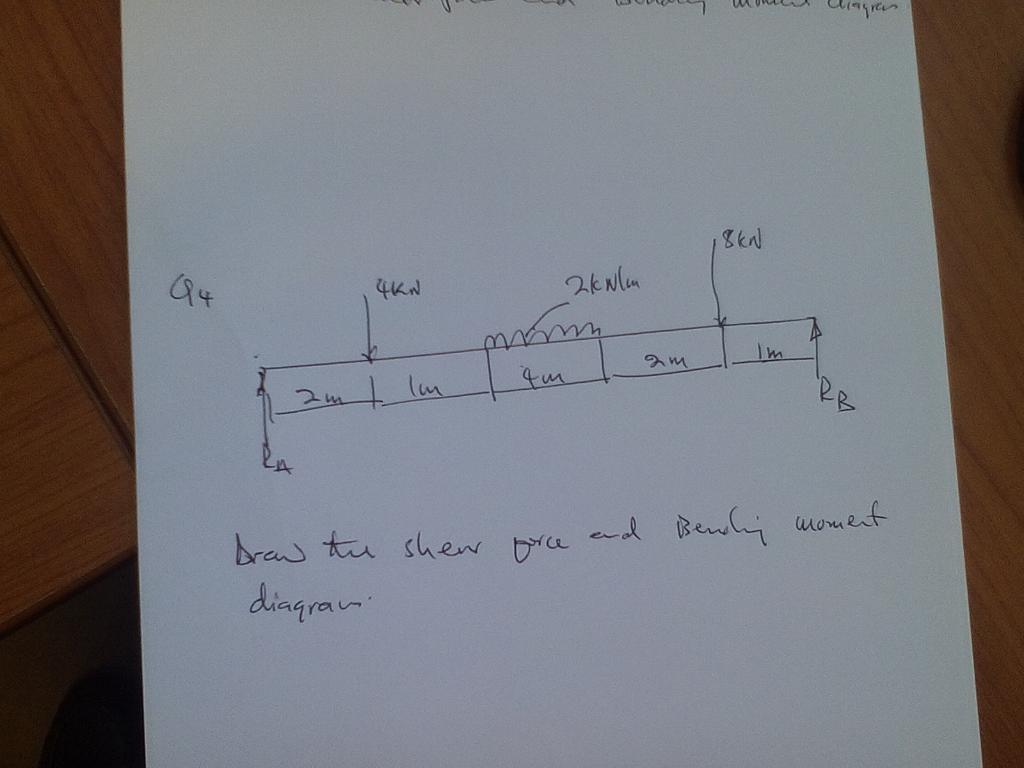 and Bending moment diagram
8kN
Q4
4KN
2kN/m
2m
1m
4m
2m
1m
RA
RB
Draw the shear force and Bending moment
diagram.